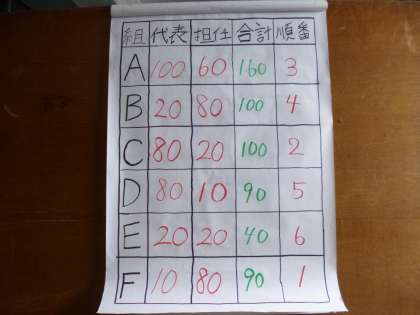 組 代表 担任 合計 順番
A 100 60 160 3
B 20 80 100 4
C 80 20 100 2
D 80 10 90 5
E 20 20 40 6
F 10 80 90 1